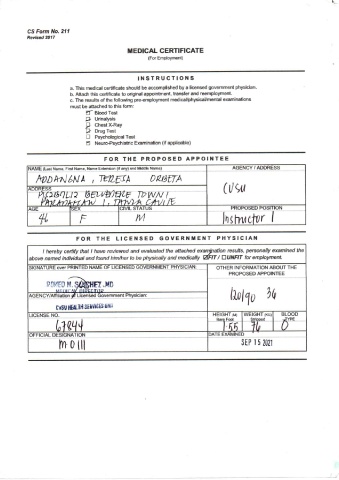 CS Form No. 211
Revised 2017
MEDICAL CERTIFICATE
(For Employment)
INSTRUCTIONS
a. This medical certificate should be accomplished by a licensed government physician.
b. Attach this certificate to original appointment, transfer and reemployment.
c. The results of the following pre-employment medical/physical/mental examinations
must be attached to this form:
Blood Test
Urinalysis
Chest X-Ray
Drug Test
Psychological Test
Neuro-Psychiatric Examination (if applicable)
FOR THE PROPOSED APPOINTEE
NAME (Last Name, First Name, Name Extension (if any) and Middle Name)
AGENCY / ADDRESS
ADDANGNA, TERESA ORBETA
CVSU
ADDRESS
BELVEDERE TOWN 1
1, TANZA CAVITE
AGE
SEX
CIVIL STATUS
PROPOSED POSITION
46
F
M
Instructor I
FOR THE LICENSED GOVERNMENT PHYSICIAN
I hereby certify that I have reviewed and evaluated the attached examination results, personally examined the
above named individual and found him/her to be physically and medically FIT / UNFIT for employment.
SIGNATURE over PRINTED NAME OF LICENSED GOVERNMENT PHYSICIAN:
OTHER INFORMATION ABOUT THE
PROPOSED APPOINTEE
ROMEO M. SANCHEZ, MD
MEDICAL DIRECTOR
AGENCY/Affiliation of Licensed Government Physician:
120/90 36
CVSU HEALTH SERVICES UNIT
LICENSE NO.
HEIGHT (M)
Bare Foot
WEIGHT (KG)
Stripped
BLOOD
TYPE
67844
1.55
76
O
OFFICIAL DESIGNATION
DATE EXAMINED
M.O III
SEP 15 2021